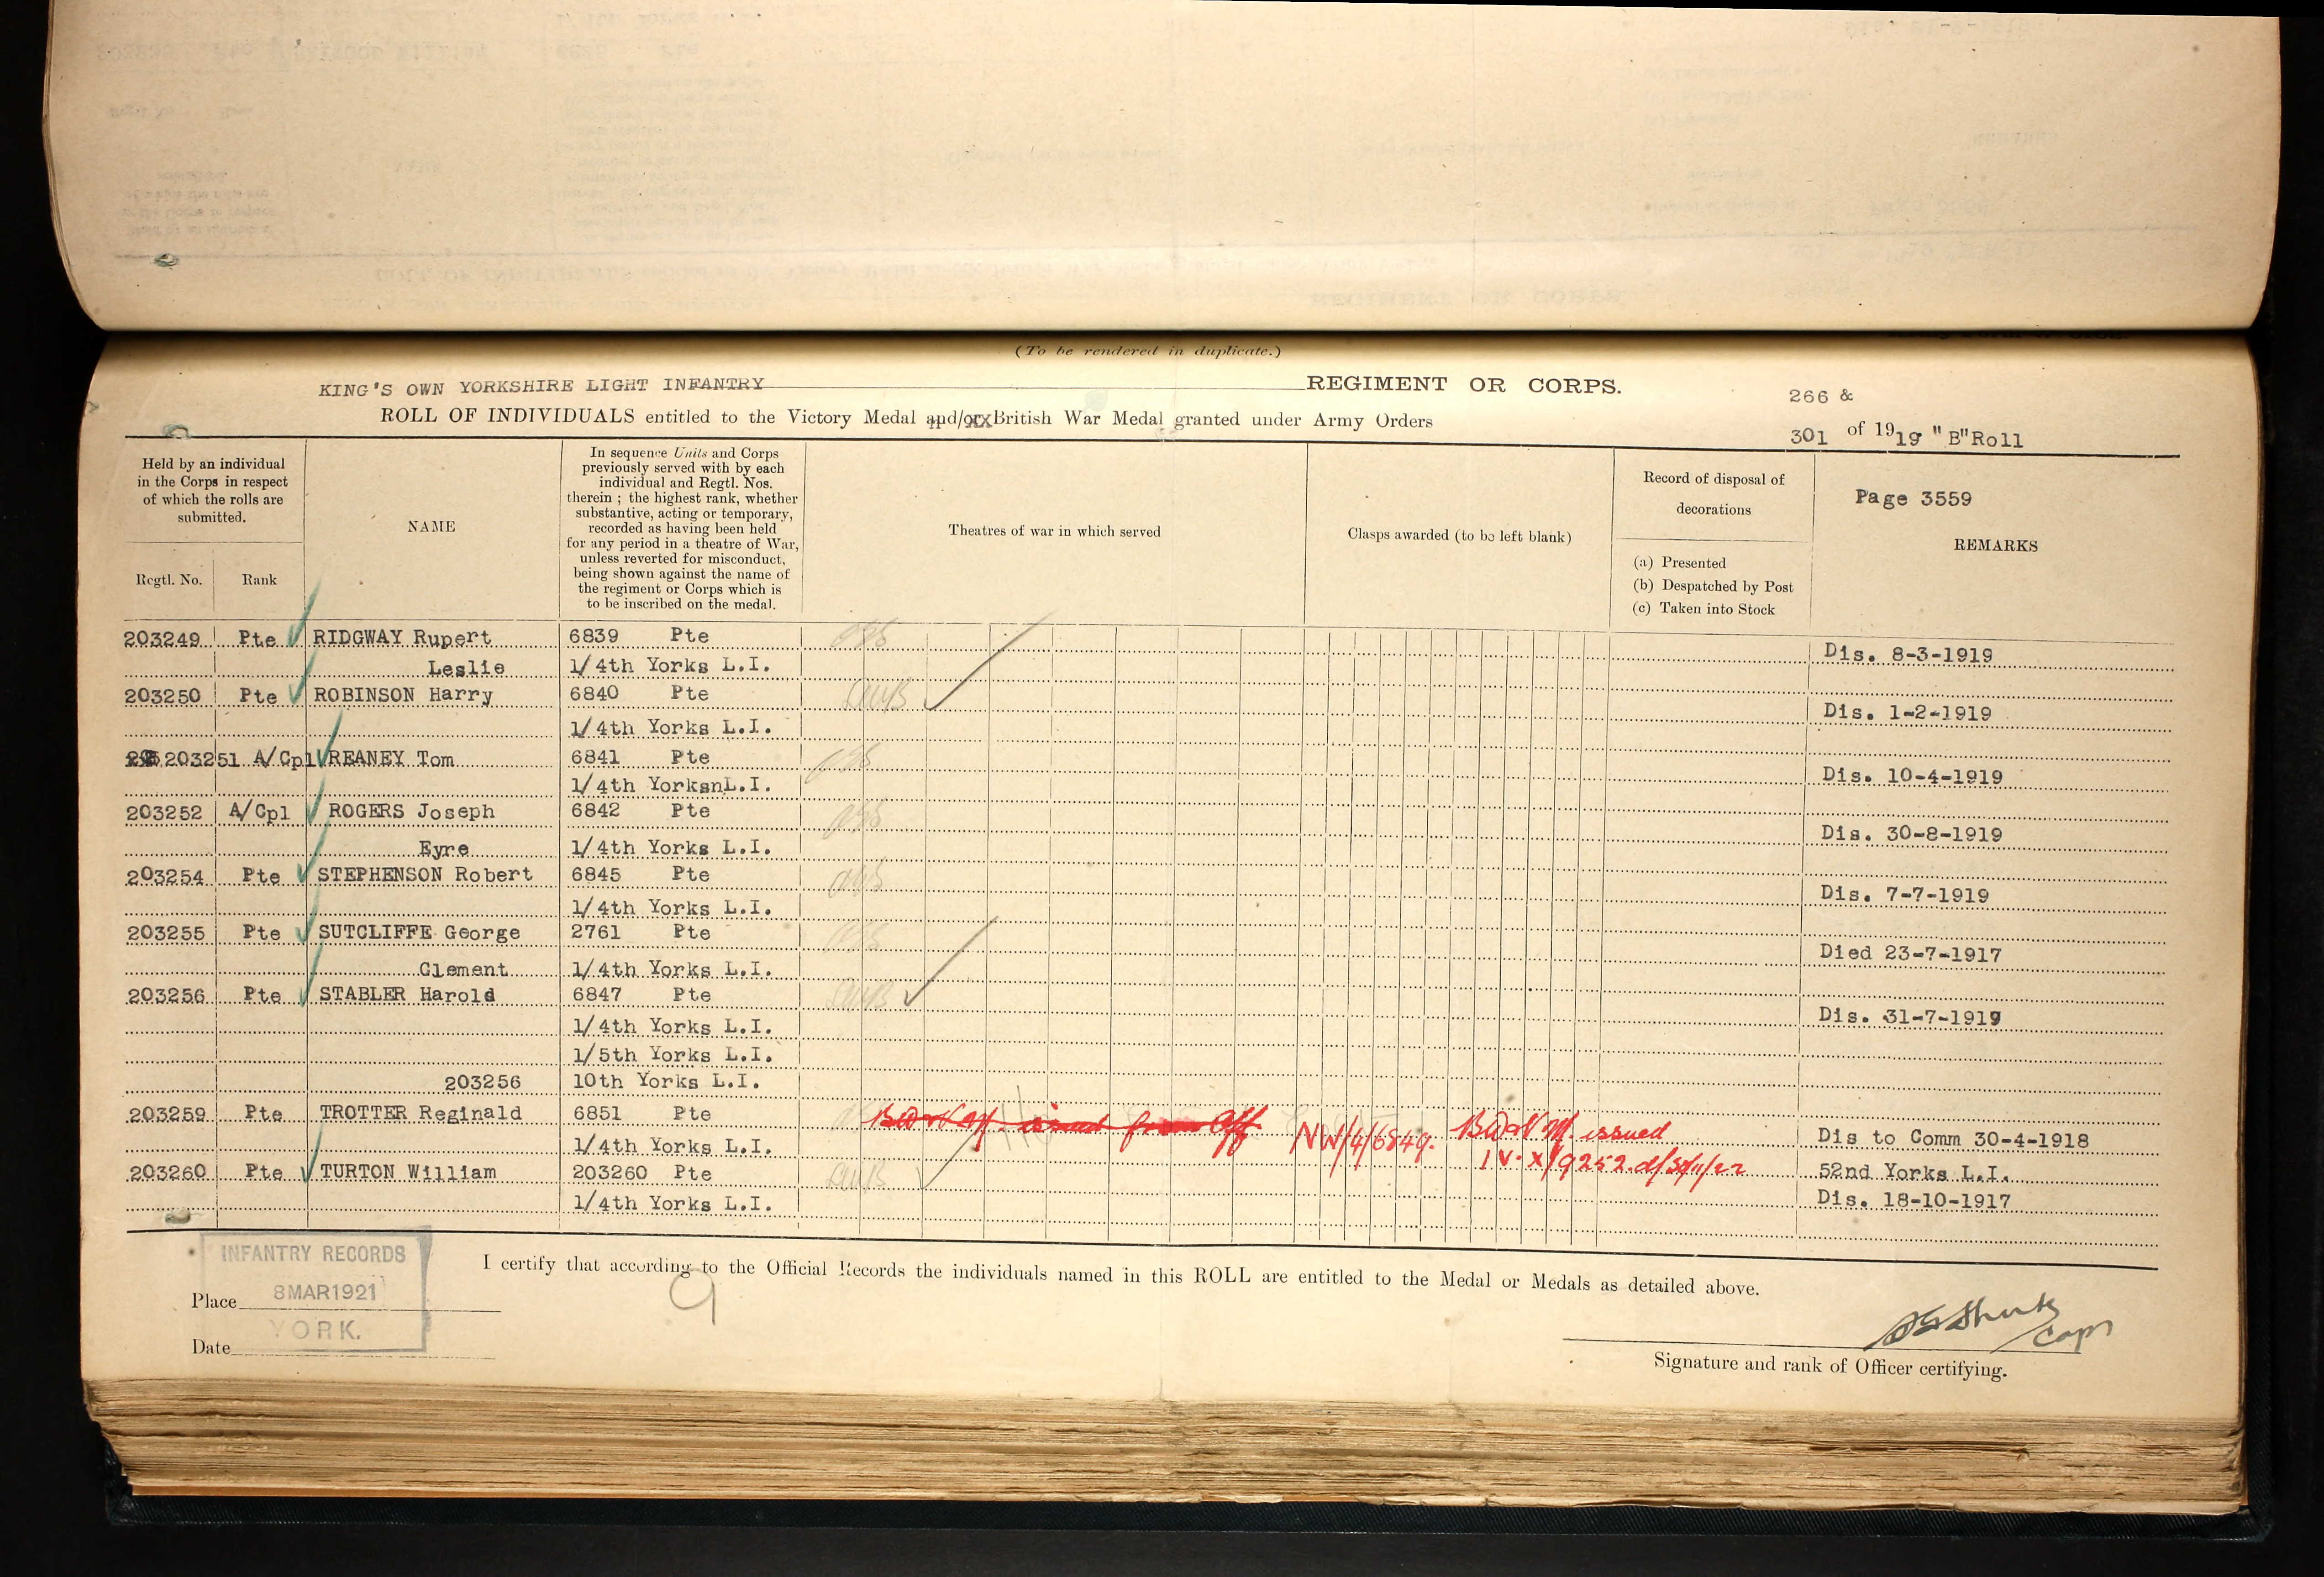 (To be rendered in duplicate.)
KING'S OWN YORKSHIRE LIGHT INFANTRY REGIMENT OR CORPS.
ROLL OF INDIVIDUALS entitled to the Victory Medal and/or British War Medal granted under Army Orders
266 &
301 of 1919 "B" Roll
Held by an individual in the Corps in respect of which the rolls are submitted.
Regtl. No. Rank
NAME
In sequence Units and Corps
previously served with by each
individual and Regtl. Nos.
therein ; the highest rank, whether
substantive, acting or temporary,
recorded as having been held
for any period in a theatre of War,
unless reverted for misconduct,
being shown against the name of
the regiment or Corps which is
to be inscribed on the medal.
Theatres of war in which served
Clasps awarded (to be left blank)
Record of disposal of
decorations
(a) Presented
(b) Despatched by Post
(c) Taken into Stock
Page 3559
REMARKS
203249 Pte RIDGWAY Rupert 6839 Pte
Leslie 1/4th Yorks L.I. Dis. 8-3-1919
203250 Pte ROBINSON Harry 6840 Pte
1/4th Yorks L.I. Dis. 1-2-1919
203251 A/Cpl REANEY Tom 6841 Pte
1/4th YorksnL.I. Dis. 10-4-1919
203252 A/Cpl ROGERS Joseph 6842 Pte
Eyre 1/4th Yorks L.I. Dis. 30-8-1919
203254 Pte STEPHENSON Robert 6845 Pte
1/4th Yorks L.I. Dis. 7-7-1919
203255 Pte SUTCLIFFE George 2761 Pte
Clement 1/4th Yorks L.I. Died 23-7-1917
203256 Pte STABLER Harold 6847 Pte
1/4th Yorks L.I. Dis. 31-7-1919
1/5th Yorks L.I.
203256 10th Yorks L.I.
203259 Pte TROTTER Reginald 6851 Pte NW/4/6849. BW&VM. issued
1/4th Yorks L.I. IV. X/9252 Dis to Comm 30-4-1918
203260 Pte TURTON William 203260 Pte 52nd Yorks L.I.
1/4th Yorks L.I. Dis. 18-10-1917
I certify that according to the Official Records the individuals named in this ROLL are entitled to the Medal or Medals as detailed above.
INFANTRY RECORDS
8 MAR 1921
YORK.
Place
Date
9
Capt
Signature and rank of Officer certifying.